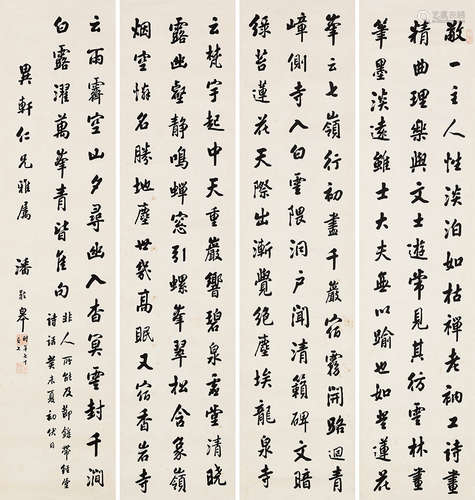 敬一主人性淡泊如枯禪老衲工詩畫
精曲理樂與文士遊常見其仿雲林畫
筆墨淡遠雖士大夫無以踰也如望蓮花
峯云七嶺行初盡千巖宿霧開路迴青
嶂側寺入白雲隈洞户聞清籟碑文暗
綠苔蓮花天際出漸覺絕塵埃龍泉寺
云梵宇起中天重巖響碧泉言堂清曉
露幽壑静鳴蟬窓引螺峯翠松含象嶺
烟空名勝地塵世幾高眠又宿香岩寺
云雨霽空山夕尋幽入杳冥雲封千澗
白露濯萬峯青皆佳句
非人所能及節錄帶經堂
詩話癸未夏初伏日
異軒仁兄雅属
潘齡皋時年七十